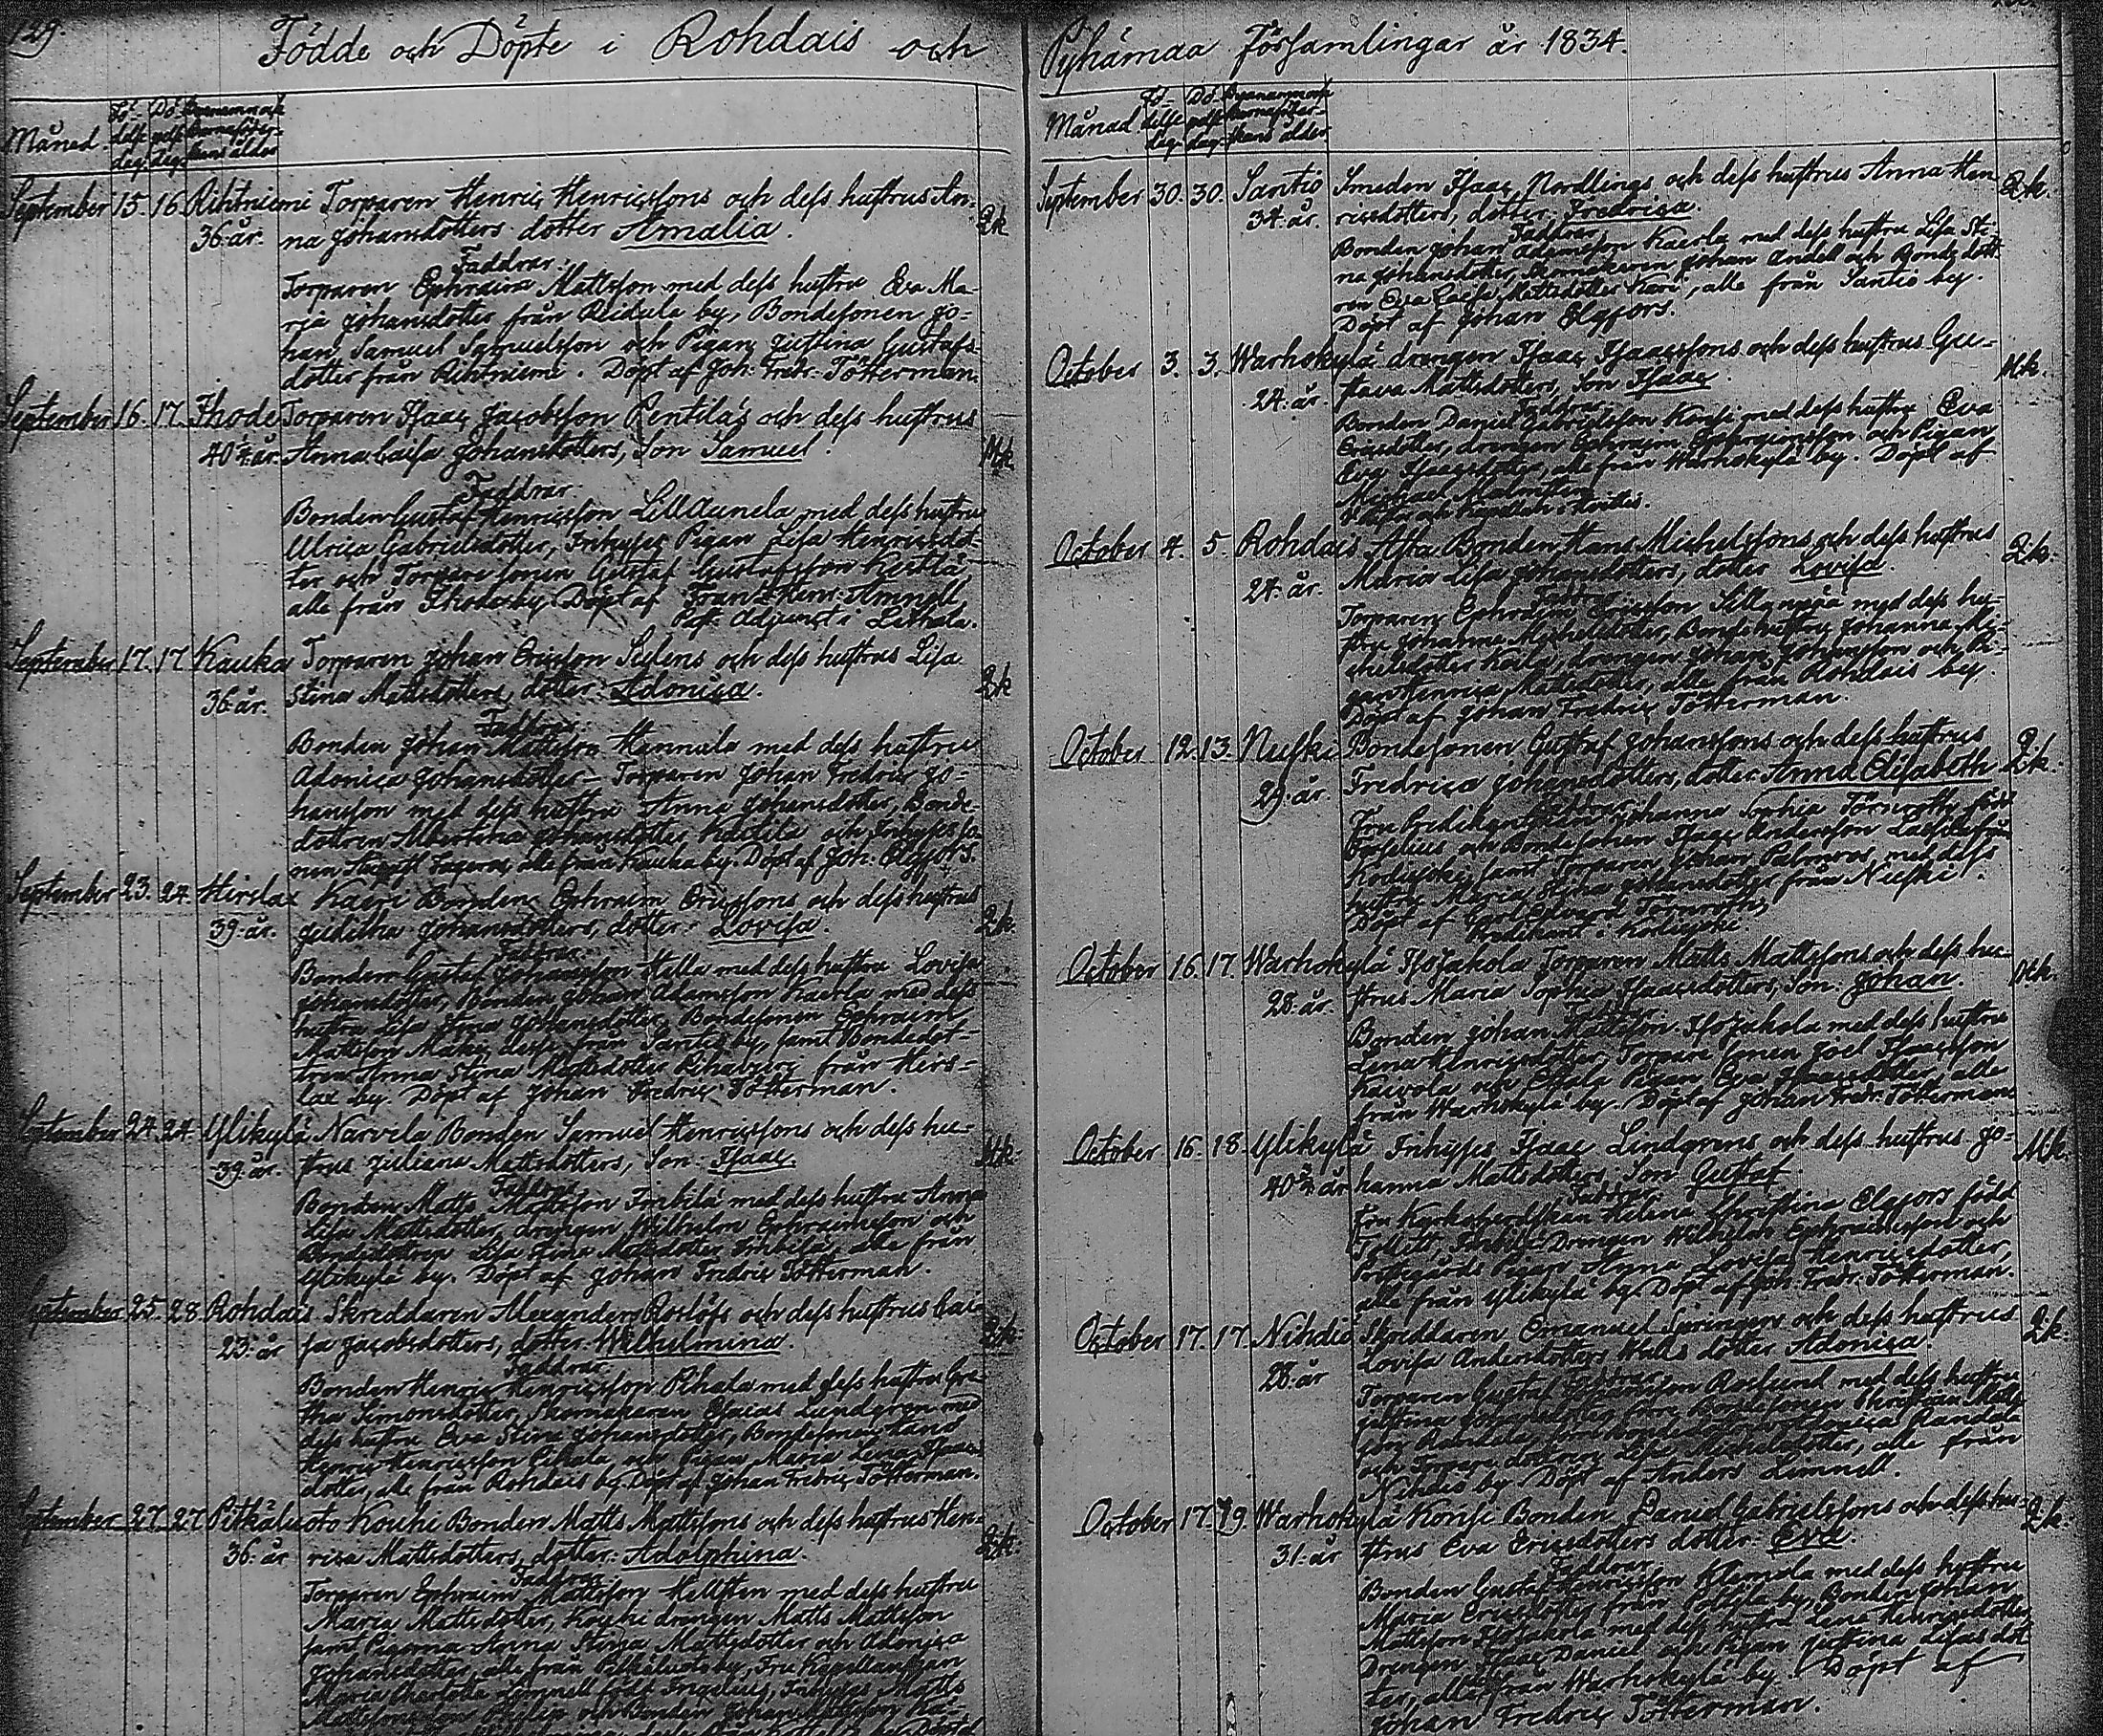 129.
Födde och Döpte i Rohdais och
Månad. Fö-
delse
dag. Dö-
pelse
dag. Byanamn och
Barnaföder-
skans ålder
September 15. 16. Rihtniemi Torparen Henric Henricssons och dess hustrus An- Qk
36. år. na Johansdotters dotter Amalia.
Faddrar:
Torparen Ephraim Mattsson med dess hustru Eva Ma-
ria Johansdotter från Reidula by, Bondesonen Jo-
han Samuel Samuelsson och Pigan Justina Gustafs-
dotter från Rihtniemi. Döpt af Joh: Fredr: Tötterman.
September 16. 17. Ihode Torparen Isaac Jacobsson Pentiläs och dess hustrus
40 år. Anna Caisa Johansdotters, Son Samuel. Mk.
Faddrar
Bonden Gustaf Henricsson Lill Aunela med dess hustru
Ulrica Gabrielsdotter, Inhyses Pigan Lisa Henricsdot-
ter och Torpare sonen Gustaf Gustafsson
alle från Ihode by. Döpt af Frans Henr: Amnell
Past. Adjunct i Letala.
September 17. 17. Kauka Torparen Johan Ericsson Selens och dess hustrus Lisa
36. år. Stina Mattsdotters, dotter: Adonica. Qk
Faddrar:
Bonden Johan Mattsson Hannula med dess hustru
Adonica Johansdotter – Torparen Johan Fredric Jo-
hansson med dess hustru Anna Johansdotter, Bonde-
dottren Albertina Johansdotter och Inhyses so-
nen alle från Kauka by. Döpt af Joh: Elgfors.
September 23. 24. Hirslax Kaeri Bonden Ephraim Ericssons och dess hustrus
39. år. Juditha Johansdotters, dotter: Lovisa. Qk.
Faddrar:
Bonden Gustaf Johansson Halla med dess hustru Lovisa
Johansdotter, Bonden Johan Adamsson Kaerla med dess
hustru Lisa Stina Johansdotter, Bondesonen Ephraim
Mattsson Mäki, desse från Santio by, samt Bondedot-
tren Anna Stina Mattsdotter från Hirs-
lax by. Döpt af Johan Fredric Tötterman.
September 24. 24. Ylikylä Narvila Bonden Samuel Henricssons och dess hu-
39. år. strus Juliana Mattsdotters, Son: Isaac. Mk.
Faddrar
Bonden Matts Mattsson Finkilä med dess hustru Anna
Lisa Mattsdotter, drengen Wilhelm Ephraimsson och
Bondedottren Lisa Stina Mattsdotter alle från
Ylikylä by. Döpt af Johan Fredric Tötterman.
September 25. 28. Rohdais Skreddaren Alexander Roslöfs och dess hustrus Cai-
23. år sa Jacobsdotters, dotter: Wilhelmina. Qk.
Faddrar
Bonden Henric Henricsson Pihala med dess hustru Gre-
tha Simonsdotter, Skomakaren Esaias Lundgren med
dess hustru Eva Stina Johansdotter, Bondesonen Hans
Henric Henricsson Pihala och Pigan Maria Lena Isaacs-
dotter, alle från Rohdais by. Döpt af Johan Fredric Tötterman.
September 27. 27. Pitkäluoto Kouhi Bonden Matts Mattssons och dess hustrus Hen-
36. år rica Mattsdotters, dotter: Adolphina. Qk.
Faddrar
Torparen Ephraim Mattsson Hellsten med dess hustru
Maria Mattsdotter, Kouhi drengen Matts Mattsson
samt Pigorna Anna Stina Mattsdotter och Adonica
Johansdotter, alle från Pitkäluoto by, Fru Kapellanskan
Maria Charlotta Limnell född Ingelius, Inhyses Matts
Mattssons son och Bonden Johan Mattsson
Pyhämaa Församlingar år 1834.
Månad Fö-
delse
dag Dö-
pelse
dag. Byanamn och
Barnaföder-
skans ålder
September 30. 30. Santio Smeden Isaac Nordlings och dess hustrus Anna Hen Qk.
34. år. ricsdotters, dotter, Fredrica.
Faddrar
Bonden Johan Adamsson Kaerla med dess hustru Lisa Sti-
na Johansdotter, Skomakaren Johan Andell och Bonde dott-
ren Eva Caisa Mattsdotter Kari, alle från Santio by.
Döpt af Johan Elgfors.
October 3. 3. Warhokylä drengen Isaac Isaacssons och dess hustrus Gu-
24. år. stava Mattsdotters, Son Isaac. Mk.
Faddrar
Bonden Daniel Gabrielsson Konsi med dess hustru Eva
Ericsdotter, drengen Ephraim Ephraimsson och Pigan
Eva Isaacsdotter, alle från Warhokylä by. Döpt af
Michael Malmsten
October 4. 5. Rohdais Asta Bonden Hans Michelssons och dess hustrus Qk.
24. år. Maria Lisa Johansdotters, dotter Lovisa.
Faddrar
Torparen Ephraim Ericsson med dess hu-
stru Johanna Michelsdotter, Bonde hustru Johanna Mi-
chelsdotter Kaila, drengen Johan Johansson och Pi-
gan Henrica Mattsdotter, alle från Rohdais by.
Döpt af Johan Fredric Tötterman.
October 12. 13. Nuhki Bondesonen Gustaf Johanssons och dess hustrus
29. år. Fredrica Johansdotters, dotter: Anna Elisabeth Qk.
Faddrar
Fru Predikantskan Johanna Sophia Törnroth född
och Bondesonen Isaac Andersson
Kodisjoki, samt Torparen Johan Palmros med dess
hustru Maria Stina Johansdotter från Nuhki.
Döpt af Carl Edvard Törnroth,
Predikant i Kodisjoki.
October 16. 17. Warhokylä IsoJakola Torparen Matts Mattssons och dess hu-
28. år. strus Maria Sophia Isaacsdotters, Son: Johan. Mk.
Faddrar
Bonden Johan Mattsson IsoJakola med dess hustru
Lena Henricsdotter, Torpare sonen Joel Isaacsson
Kaivola och Pigan Eva Isaacsdotter alle
från Warhokylä by. Döpt af Johan Fredr. Tötterman.
October 16. 18. Ylikylä Inhyses Isaac Lindgrens och dess hustrus Jo- Mk.
40 år hanna Mattsdotters, Son Gustaf
Faddrar
Fru Kyrkoherdskan Helena Christina Elgfors född
Drengen Wilhelm Ephraimsson och
Prostegårds Pigan Anna Lovisa Henricsdotter,
alle från Ylikylä by. Döpt af Joh: Fredr. Tötterman.
October 17. 17. Nihdiö Skreddaren Emanuel Springers och dess hustrus Qk.
28. år Lovisa Andersdotters dotter Adonica.
Faddrar
Torparen Gustaf Johansson Roslund med dess hustru
Justina Johansdotter, Bondesonen Christian Matts-
son Randala, Randala
och Torpare dottren Lisa Michelsdotter, alle från
Nihdiö by. Döpt af Anders Limnell.
October 17. 19. Warhokylä Konsi Bonden Daniel Gabrielssons och dess hu- Qk.
31. år strus Eva Ericsdotters dotter: Eva.
Faddrar:
Bonden Gustaf Henricsson Klemola med dess hustru
Maria Ericsdotter från Poltsila by, Bonden Johan
Mattsson IsoJakola med dess hustru Lena Henricsdotter
Drengen Isaac Daniel och Pigan Justina Lisas dot
ter, alle från Warhokylä by. Döpt af
Johan Fredric Tötterman.